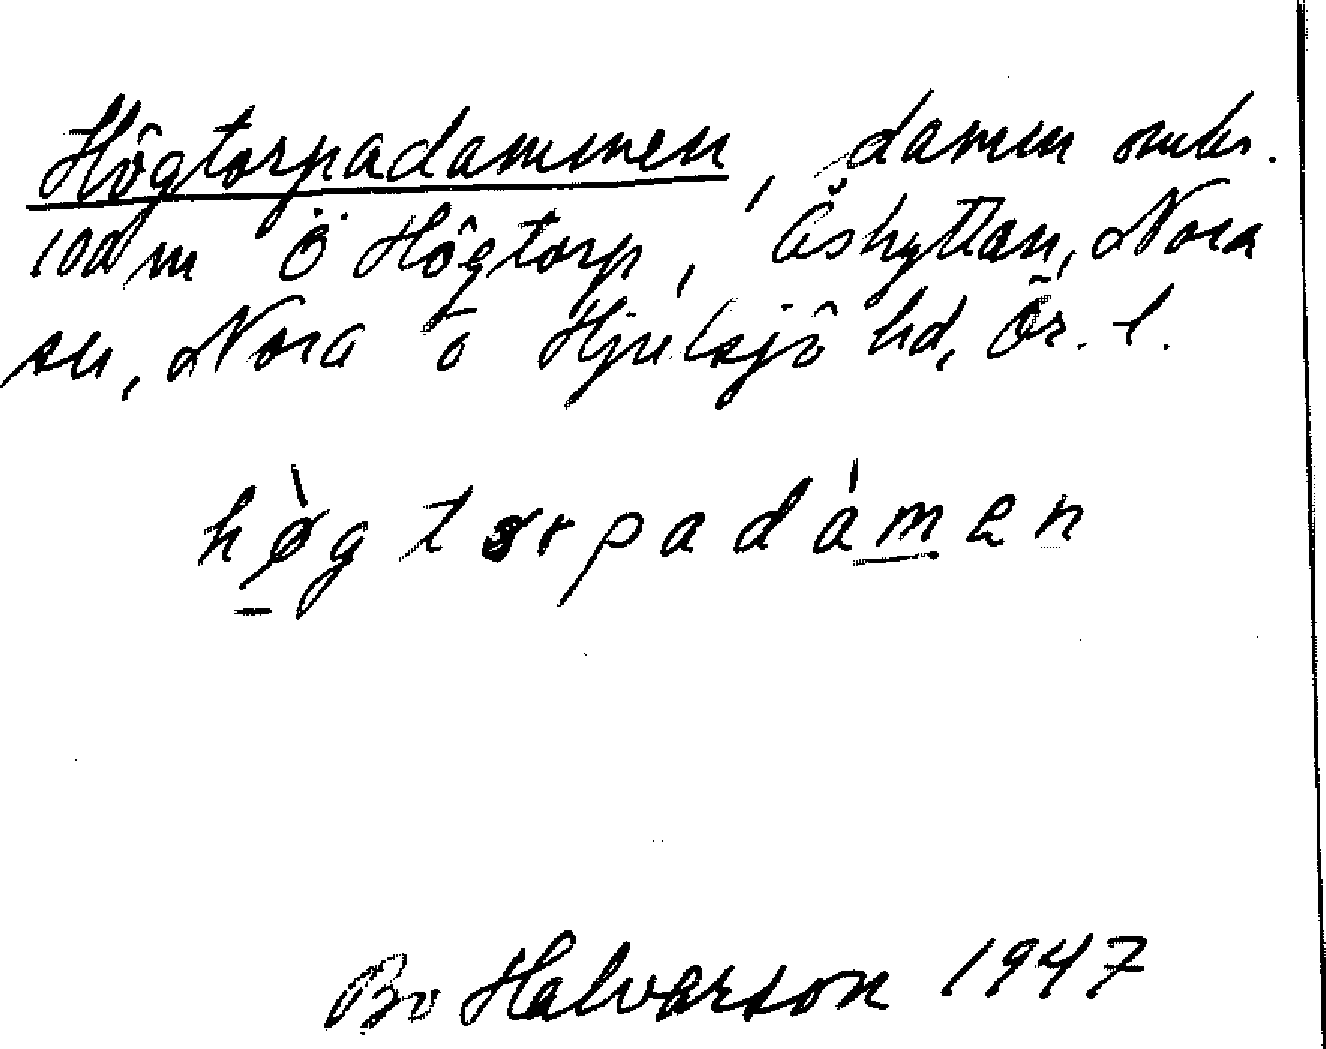 Högtorpadammen, damm omkr.
100 m Ö Högtorp, Åshyttan, Nora
sn, Nora o Hjulsjö hd, Ör. l.
hø̀gtorpadámen
Bo Halvarson 1947